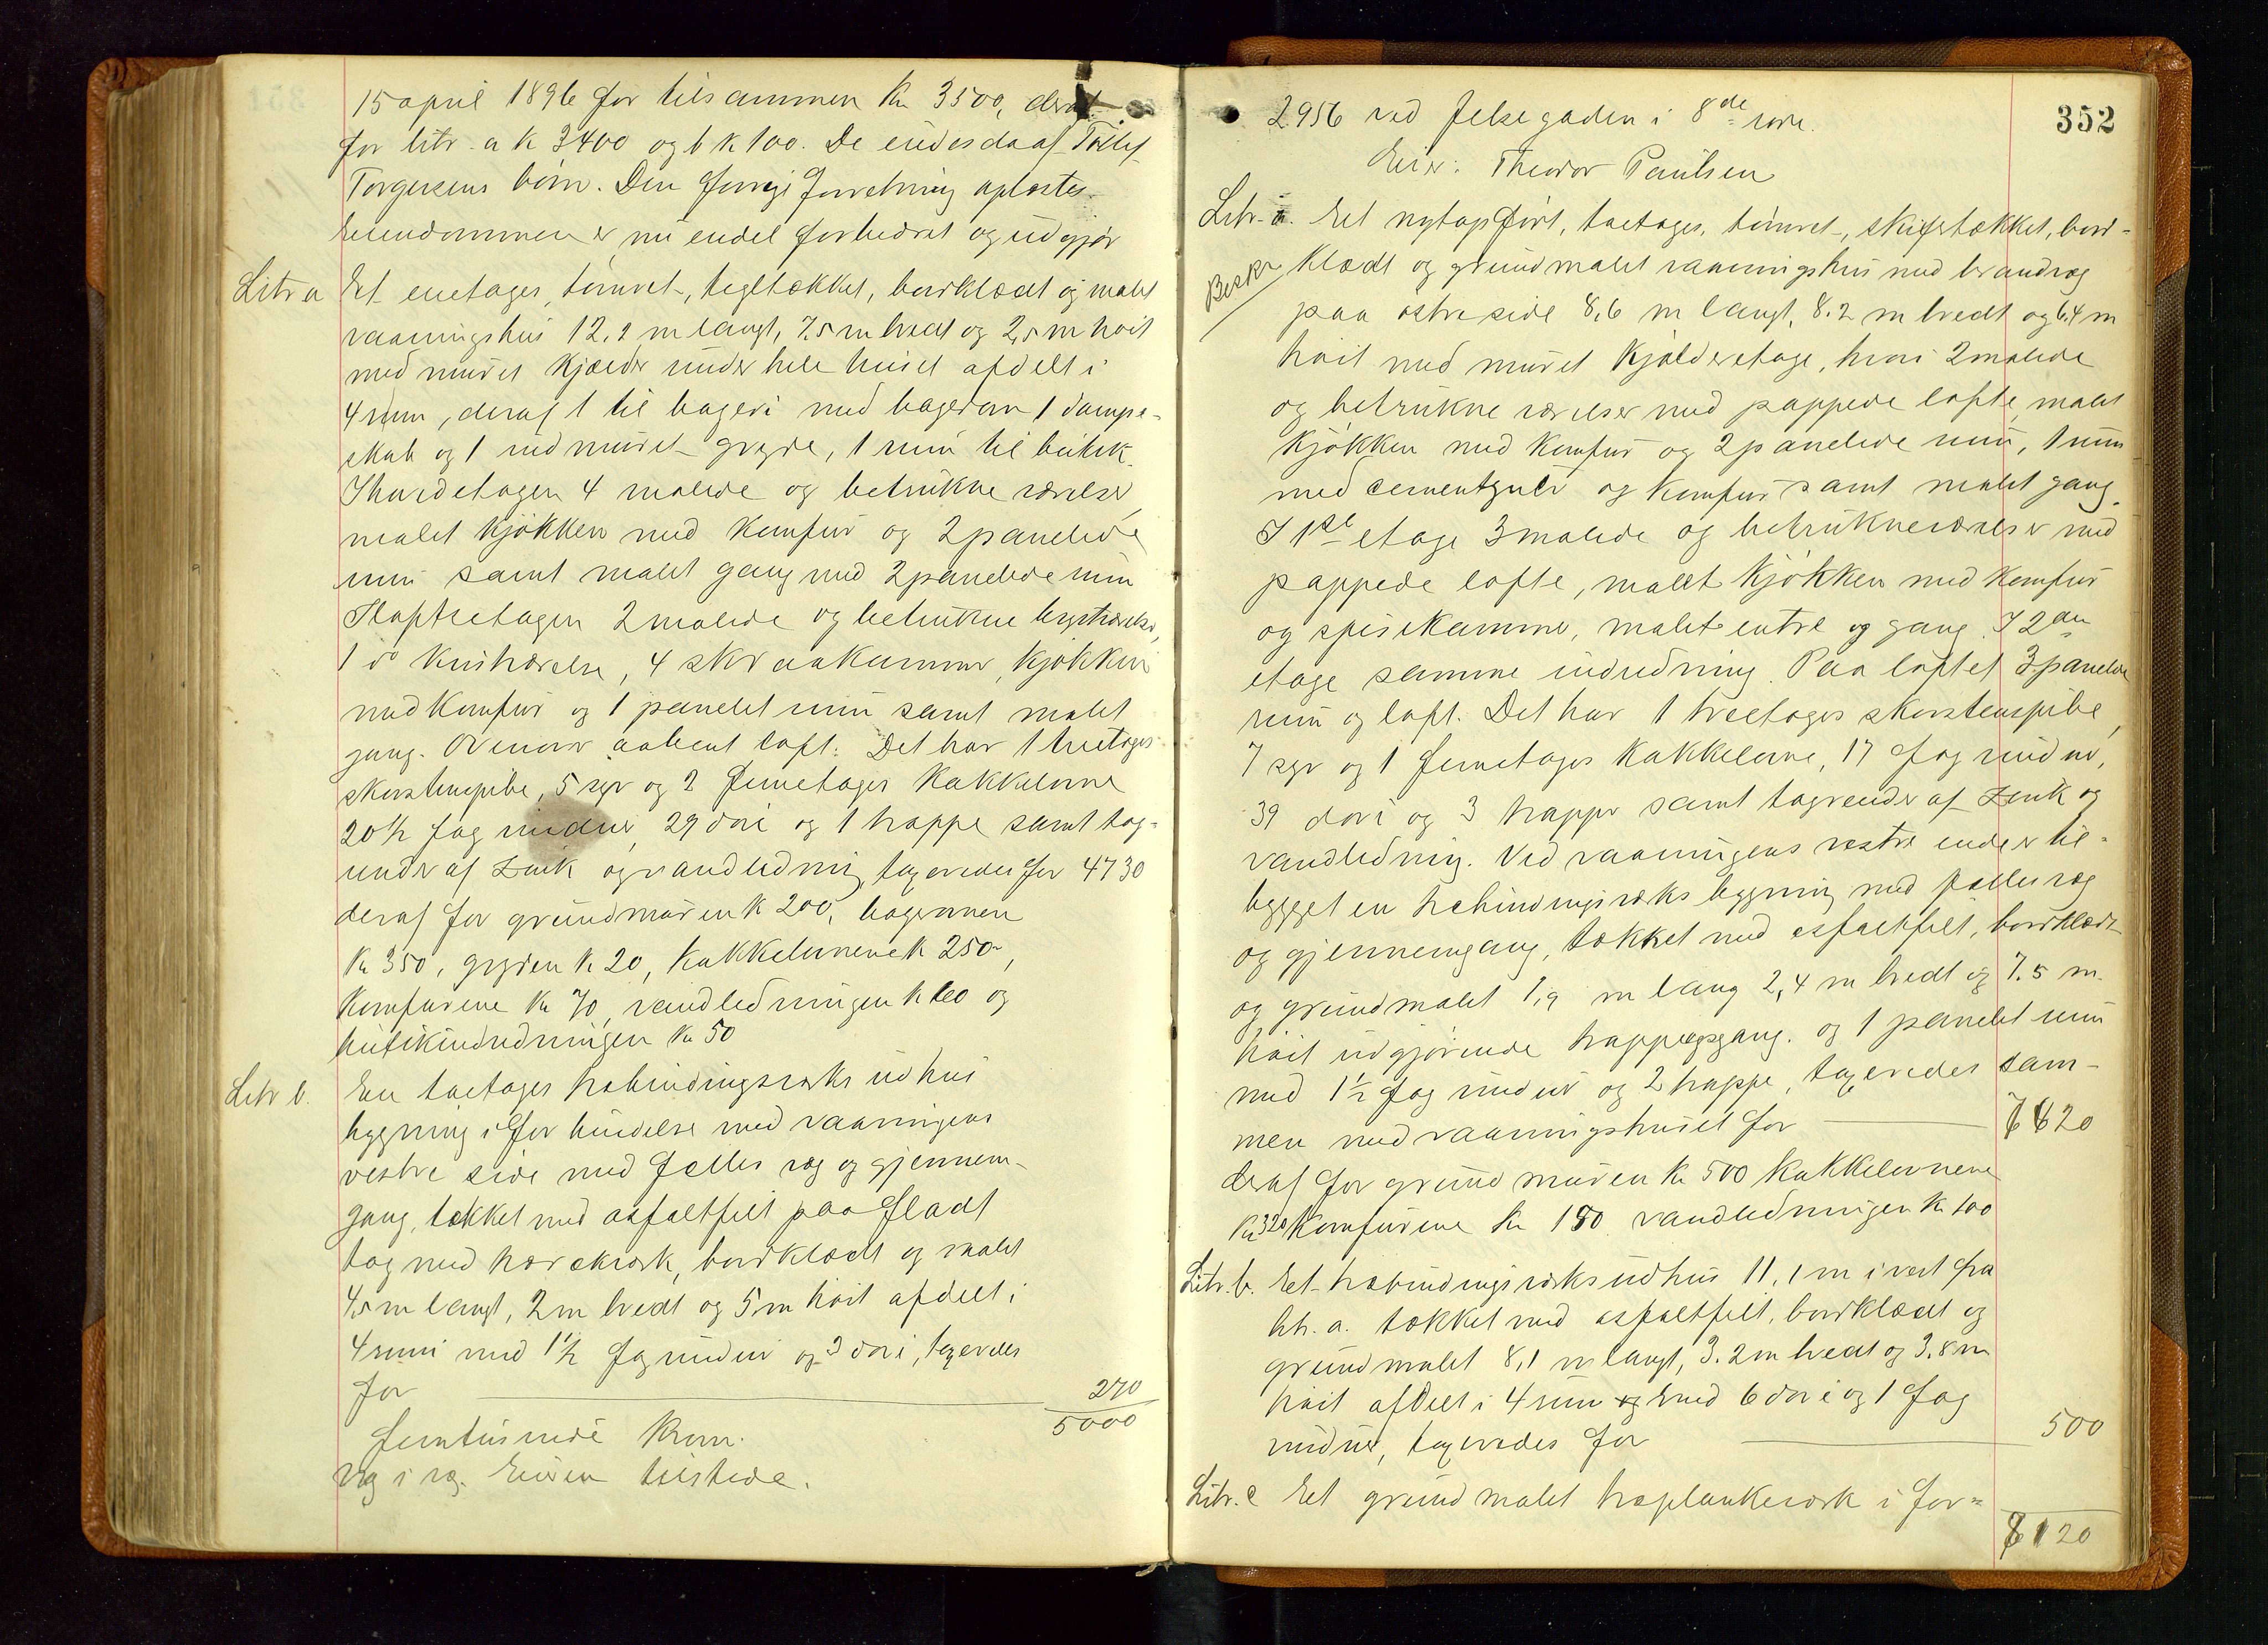 15 april 1896 for tilsammen Kr 3500, deraf
for litr. a k 3400 og b k 100. De eiedes da af Tollef
Torgersens børn. Den forrige forretning opløstes
Eiendommen er nu endel forbedret og udgjør
Litr a Et enetages, tømret-, tegltækket, bordklædt og malet
vaaningshus 12,2 m langt, 7,5 m bredt og 2,5 m høit
med muret Kjælder under hele huset afdelt i
4 rum, deraf 1 til bageri med bagerovn 1 dampe-
skab og 1 indmuret gryde, 1 rum til butik.
I hovedetagen 4 malede og betrukne værelser,
malet kjøkken med komfur og 2 panelede
rum samt malet gang med 2 panelede rum
I loftsetagen 2 malede og betrukne kvistværelser,
1 do kvistværelse, 4 skraakammer, kjøkken
med komfur og 1 panelet rum samt malet
gang. Ovenover aabent loft. Det har 1 treetages
skorstenspibe, 5 syv og 2 femetages kakkelovne
20 1/2 fag vinduer, 29 døre og 1 trappe samt tag-
render af zink og vandledning, taxeredes for 4730
deraf for grundmuren k 200, bagerovnen
Kr 350, gryden k 20, kakkelovnene k 250,
komfurene Kr 70, vandledningen k 60 og
butikindredningen Kr 50
Litr b. En toetages trebindingsverks udhus
bygning i forbindelse med vaaningens
vestre side med fælles væg og gjennem-
gang, tækket med asfaltfilt paa fladt
tag med bordklædt og malet
4,5 m langt, 2 m bredt og 5 m høit afdelt i
4 rum med 1 1/2 fag vinduer og 3 døre, taxeredes
for 270
5000
femtusinde kron.
Væg i væg. Eieren tilstede.
352
2956 ved Jelsegaden i 8de rode.
Eier: Theodor Paulsen
Litr. a. Et nytopført, toetages, tømret-, skifertækket, bord-
Beskr
klædt og grundmalet vaaningshus med brandvæg
paa østre side 8,6 m langt, 8,2 m bredt og 6,4 m
høit med muret Kjælderetage, hvori 2 malede
og betrukne værelser med pappede lofte, malet
Kjøkken med Komfur og 2 panelede rum, 1 rum
med cementgulv og komfur samt malet gang.
I 1ste etage 3 malede og betrukne værelser med
pappede lofte, malet kjøkken med komfur
og spisekammer, malet entre og gang. I 2den
etage samme indredning. Paa loftet 3 panelede
rum og loft. Det har 1 treetages skorstenspibe,
7 syv og 1 femetages kakkelovne, 17 fag vinduer,
39 døre og 3 trapper samt tagrender af zink og
vandledning. Ved vaaningens vestre ende er til-
bygget en trebindingsverks bygning med fælles væg
og gjennemgang, tækket med asfaltfilt, bordklædt
og grundmalet 1,9 m lang 2,4 m bredt og 7,5 m
høit udgjørende trappeopgang. og 1 panelet rum
med 1 1/2 fag vinduer og 2 trappe, taxeredes sam-
men med vaaningshuset for 7620
deraf for grundmuren Kr 500 kakkelovnene
Kr 320 Komfurene Kr 180 vandledningen Kr 100
Litr. b. Et trebindingsverks udhus 11,1 m i vest fra
litr. a. tækket med asfaltfilt, bordklædt og
grundmalet 8,1 m langt, 3,2 m bredt og 3,8 m
høit afdelt i 4 rum og med 6 døre og 1 fag
vinduer, taxeredes for 500
Litr. c Et grundmalet træplankeværk i for-
8120